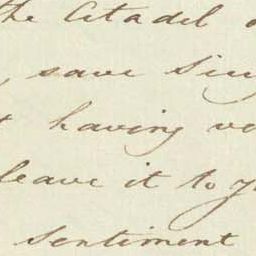 the Citadel
, save
having
leave it to
sentiment